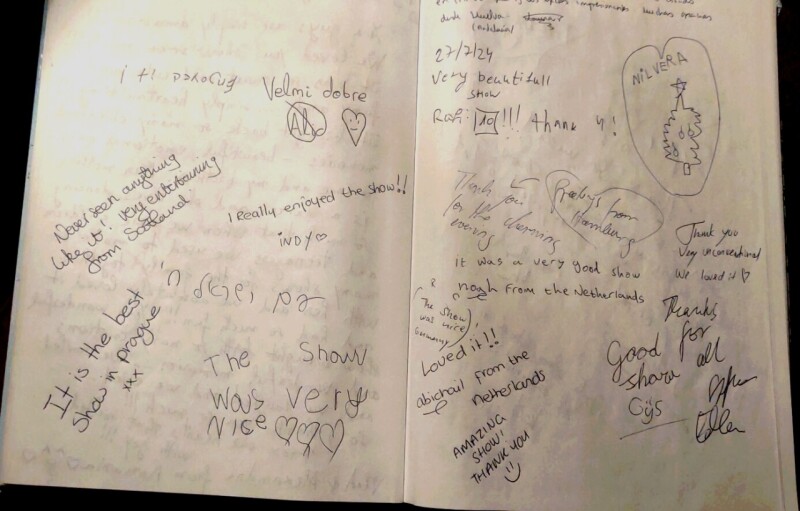 Enjoyed it!
Velmi dobre
Never seen anything
like it! very entertaining
from Scotland
I Really enjoyed the show!!
iNDY♡
It is the best
Show in prague
xxx
The Show
was very
Nice ♡♡♡
27/7/24
very beautifull
show
10 !!! thank u!
NiLVERA
Thank you
for the charming
evening
from
Hamburg
Thank you
Very unconventional
We loved it ♡
it was a very good show
noah from the Netherlands
The show
was nice
Germany
Loved it!!
abichail from the
Netherlands
AMAZING
SHOW!
THANK YOU
Thanks
for
all
Good
show
Gijs